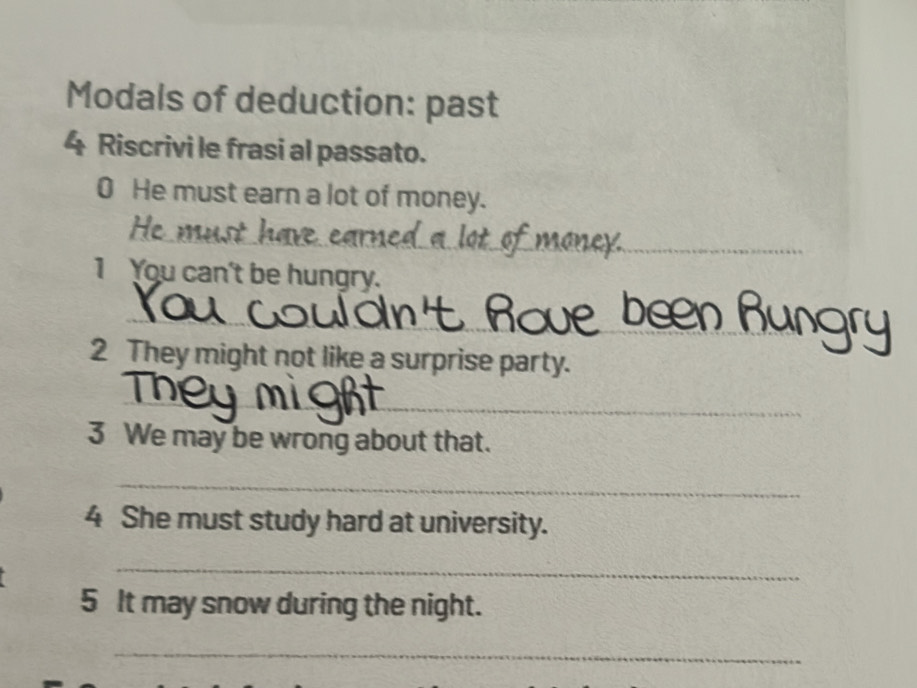 Modals of deduction: past
4 Riscrivi le frasi al passato.
0 He must earn a lot of money.
He must have earned a lot of money.
1 You can't be hungry.
You couldn't have been hungry
2 They might not like a surprise party.
They might
3 We may be wrong about that.
4 She must study hard at university.
5 It may snow during the night.